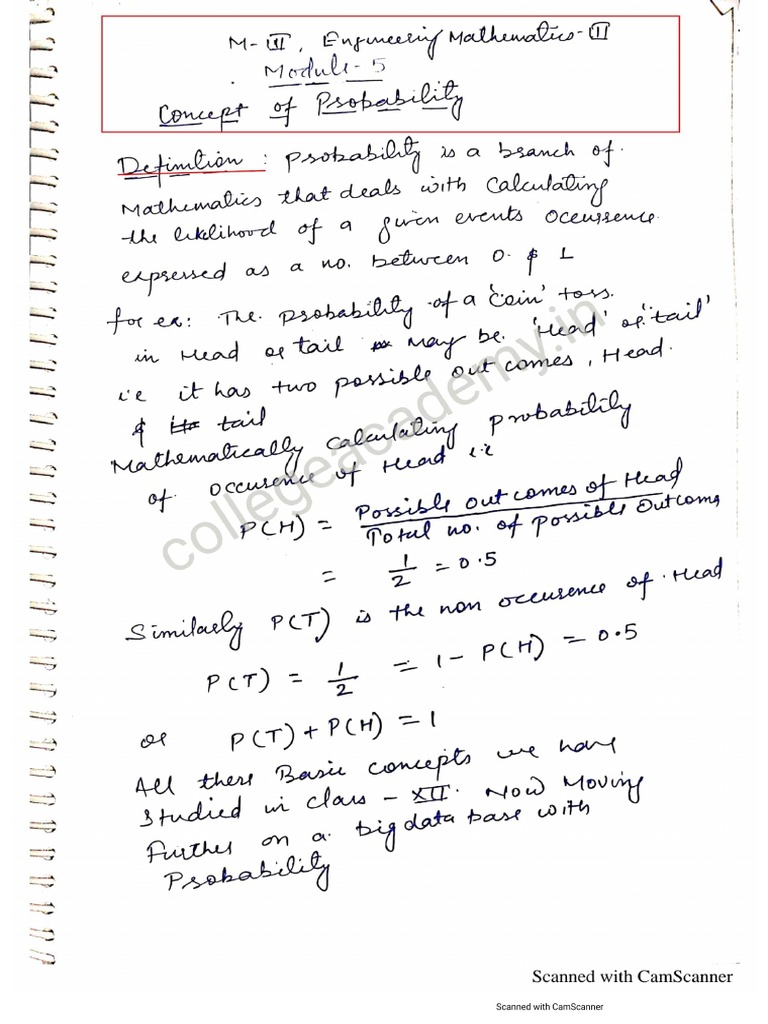 M-III, Engineering Mathematics-III
Module-5
Concept of Probability
Definition: Probability is a branch of
Mathematics that deals with calculating
the likelihood of a given events occurrence
expressed as a no. between 0 & 1
for ex: The probability of a 'coin' toss.
in Head or tail may be 'Head' or 'tail'
i.e it has two possible outcomes, Head
& tail
Mathematically calculating probability
of occurence of Head i.e
P(H) = Possible outcomes of Head
Total no. of possible outcome
= 1/2 = 0.5
Similarly P(T) is the non occurence of Head
P(T) = 1/2 = 1 - P(H) = 0.5
or P(T) + P(H) = 1
All these Basic concepts we have
studied in class - XII. Now Moving
Further on a big data base with
Probability
collegeacademy.in
Scanned with CamScanner
Scanned with CamScanner